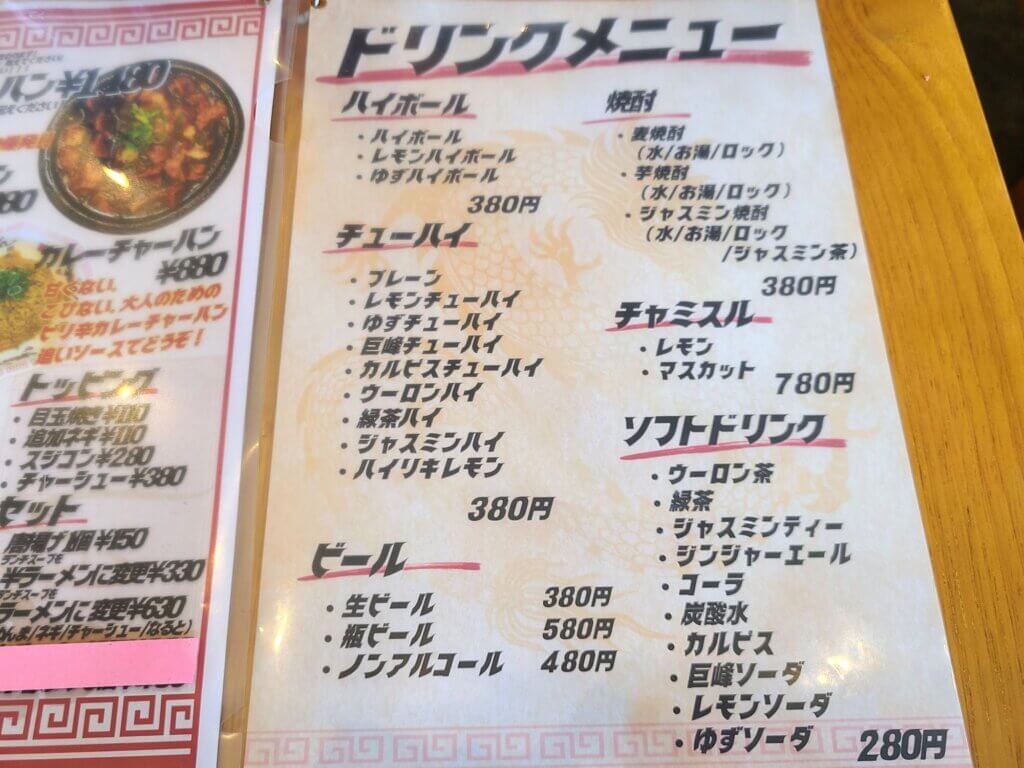 ハン¥1,480
カレーチャーハン
¥880
甘くない、
こびない、大人のための
ピリ辛カレーチャーハン
追いソースでどうぞ!
トッピング
・目玉焼き¥110
・追加ネギ¥110
・スジコン¥280
・チャーシュー¥380
セット
唐揚げ1個¥150
ランチスープを
半ラーメンに変更¥330
ランチスープを
ラーメンに変更¥630
めんま/ネギ/チャーシュー/なると)
ドリンクメニュー
ハイボール
・ハイボール
・レモンハイボール
・ゆずハイボール
380円
チューハイ
・プレーン
・レモンチューハイ
・ゆずチューハイ
・巨峰チューハイ
・カルピスチューハイ
・ウーロンハイ
・緑茶ハイ
・ジャスミンハイ
・ハイリキレモン
380円
ビール
・生ビール 380円
・瓶ビール 580円
・ノンアルコール 480円
焼酎
・麦焼酎
(水/お湯/ロック)
・芋焼酎
(水/お湯/ロック)
・ジャスミン焼酎
(水/お湯/ロック
/ジャスミン茶)
380円
チャミスル
・レモン
・マスカット 780円
ソフトドリンク
・ウーロン茶
・緑茶
・ジャスミンティー
・ジンジャーエール
・コーラ
・炭酸水
・カルピス
・巨峰ソーダ
・レモンソーダ
・ゆずソーダ 280円